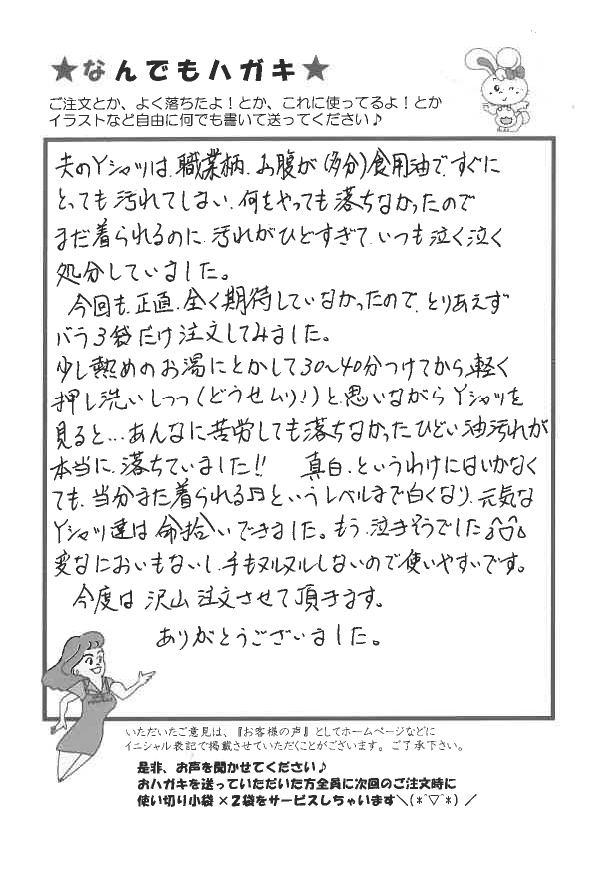 ★なんでもハガキ★
ご注文とか、よく落ちたよ!とか、これに使ってるよ!とか
イラストなど自由に何でも書いて送ってください♪
夫のYシャツは、職業柄、お腹が(多分)食用油で、すぐに
とっても汚れてしまい、何をやっても落ちなかったので
まだ着られるのに、汚れがひどすぎて、いつも泣く泣く
処分していました。
今回も、正直、全く期待していなかったので、とりあえず
バラ3袋だけ注文してみました。
少し熱めのお湯にとかして30〜40分つけてから、軽く
押し洗いしつつ(どうせムリ♪)と思いながらYシャツを
見ると…あんなに苦労しても落ちなかったひどい油汚れが
本当に、落ちていました!! 真白、というわけにはいかなく
ても、当分また着られる♫というレベルまで白くなり、元気な
Yシャツ達は命拾いできました。もう、泣きそうでした
変なにおいもないし、手もヌルヌルしないので使いやすいです。
今度は沢山注文させて頂きます。
ありがとうございました。
いただいたご意見は、『お客様の声』としてホームページなどに
イニシャル表記で掲載させていただくことがございます。ご了承下さい。
是非、お声を聞かせてください♪
おハガキを送っていただいた方全員に次回のご注文時に
使い切り小袋×2袋をサービスしちゃいます＼(*^▽^*)／